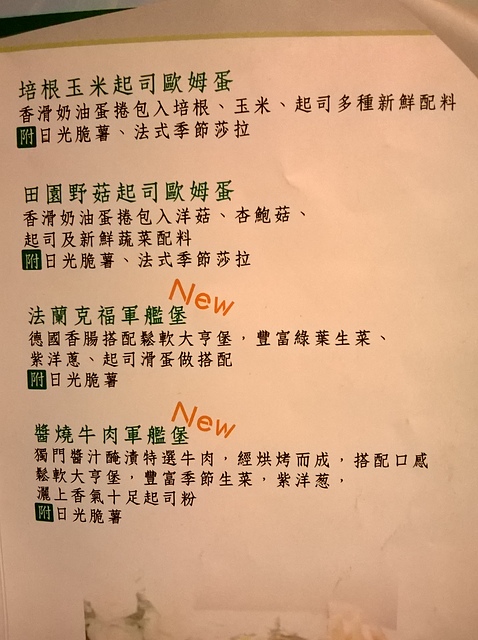 培根玉米起司歐姆蛋
香滑奶油蛋捲包入培根、玉米、起司多種新鮮配料
附 日光脆薯、法式季節莎拉
田園野菇起司歐姆蛋
香滑奶油蛋捲包入洋菇、杏鮑菇、
起司及新鮮蔬菜配料
附 日光脆薯、法式季節莎拉
New
法蘭克福軍艦堡
德國香腸搭配鬆軟大亨堡，豐富綠葉生菜、
紫洋蔥、起司滑蛋做搭配
附 日光脆薯
New
醬燒牛肉軍艦堡
獨門醬汁醃漬特選牛肉，經烘烤而成，搭配口感
鬆軟大亨堡，豐富季節生菜，紫洋葱，
灑上香氣十足起司粉
附 日光脆薯